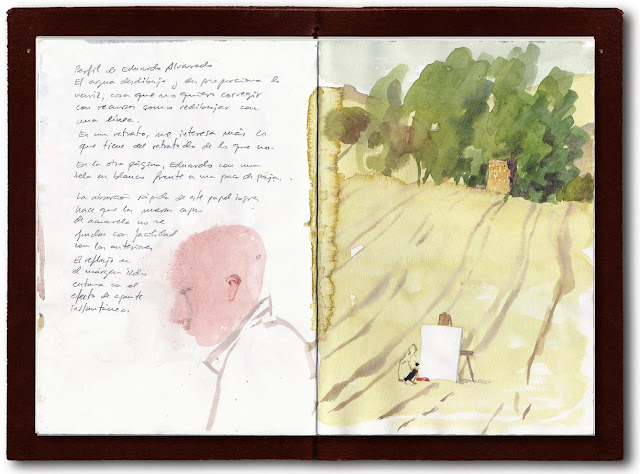 Perfil de Eduardo Alvarado
El agua desdibuja y desproporciona la
nariz, cosa que no quiero corregir
con recursos como redibujar con
una línea.
En un retrato, me interesa más lo
que tiene del retratado de lo que no.
En la otra página, Eduardo con una
tela en blanco frente a una paca de paja.
La absorción rápida de este papel ingres
hace que las nuevas capas
de acuarela no se
fundan con facilidad
con las anteriores
El reflujo en
el márgen
entona con el
efecto de apunte
instantáneo.